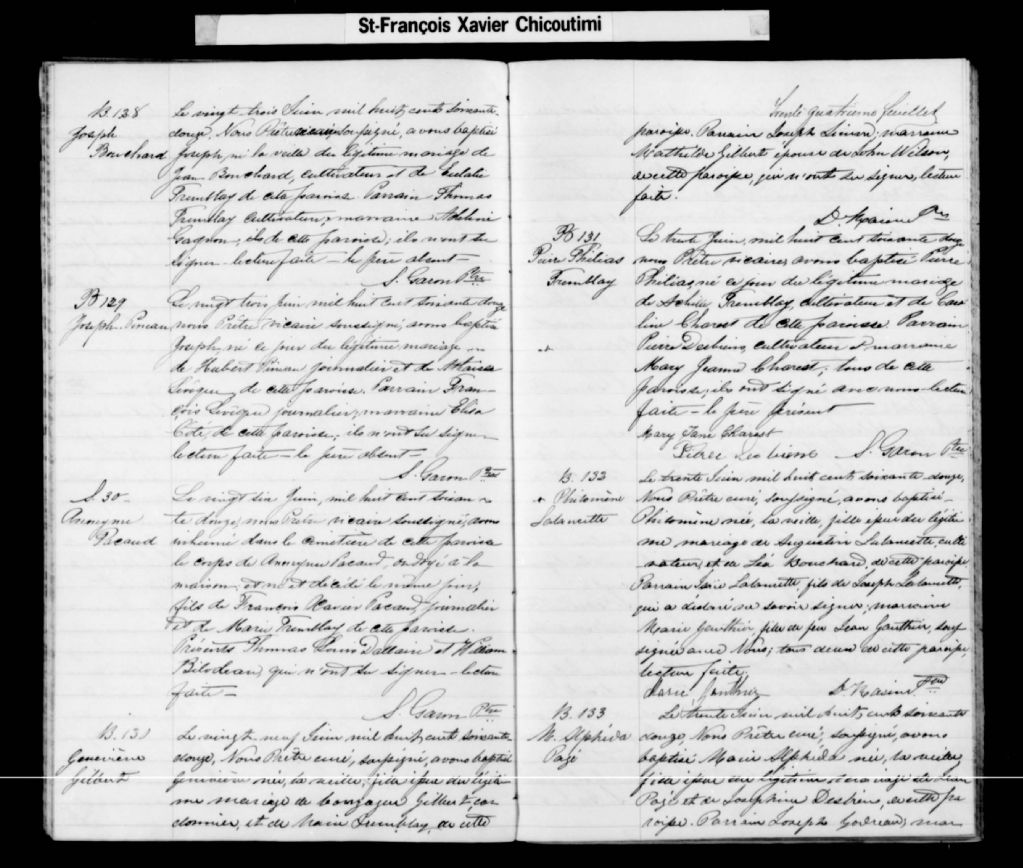 St-François Xavier Chicoutimi
B. 128
Joseph
Bouchard
Le vingt trois Juin mil huit cent soixante
douze, Nous Prêtre vicaire soussigné, avons baptisé
Joseph, né la veille du légitime mariage de
Jean Bouchard, cultivateur et de Eulalie
Tremblay de cette paroisse. Parrain Thomas
Tremblay cultivateur, marraine
Gagnon, ils de cette paroisse; ils n'ont su
signer. lecture faite — le père absent —
S. Garon Ptre
B 129
Joseph Pineau
Le vingt trois juin mil huit cent soixante douze
nous Prêtre vicaire soussigné, avons baptisé
Joseph, né ce jour du légitime mariage
de Hubert Pineau journalier et de
Lévêque de cette paroisse. Parrain Fran-
çois Lévêque journalier, marraine Elisa
Côté, de cette paroisse, ils n'ont su signer
lecture faite — le père absent —
S. Garon Ptre
S. 30
Anonyme
Pacaud
Le vingt six Juin, mil huit cent soixan-
te douze, nous Prêtre vicaire soussigné, avons
inhumé dans le cimetière de cette paroisse
le corps de Anonyme Pacaud, ondoyé à la
maison, né et décédé le même jour,
fils de François Xavier Pacaud, journalier
et de Marie Tremblay de cette paroisse.
Présents Thomas Louis Dallaire et William
Bilodeau, qui n'ont su signer — lecture
faite —
S. Garon Ptre
B. 130
Geneviève
Gilbert
Le vingt neuf Juin mil huit cent soixante
douze, Nous Prêtre curé, soussigné, avons baptisé
Geneviève née, la veille, fille issue du légiti-
me mariage de Gonzague Gilbert, cor-
donnier, et de Marie Tremblay, de cette
Trente quatrième feuillet
paroisse. Parrain Joseph Simard; marraine
Mathilde Gilbert épouse de John Wilson,
de cette paroisse, qui n'ont su signer, lecture
faite.
D. Racine Ptre
B 131
Pierre Philias
Tremblay
Le trente Juin, mil huit cent soixante douze
nous Prêtre vicaire, avons baptisé Pierre
Philias, né ce jour du légitime mariage
de Achille Tremblay, cultivateur et de Caro
line Charest de cette paroisse. Parrain
Pierre Desbiens, cultivateur & marraine
Mary Jeanne Charest, tous de cette
paroisse, ils ont signé avec nous — lecture
faite — le père présent
Mary Jane Charest
Pierre Desbiens S. Garon Ptre
B. 132
Philomène
Lalancette
Le trente Juin mil huit cent soixante douze,
Nous Prêtre curé, soussigné, avons baptisé
Philomène née, la veille, fille issue du légiti
me mariage de Augustin Lalancette, culti
vateur, et de Léa Bouchard, de cette paroisse.
Parrain Lalancette, fils de Joseph Lalancette,
qui a déclaré ne savoir signer; marraine
Marie Gauthier fille de feu Jean Gauthier, sous
signée avec Nous; tous deux de cette paroisse,
lecture faite,
Marie Gauthier D. Racine Ptre
B. 133
M. Alphéda
Pagé
Le trente Juin mil huit cent soixante
douze, Nous Prêtre curé, soussigné, avons
baptisé Marie Alphéda née, la veille,
fille issue du légitime mariage de Jean
Pagé et de Joséphine Desbiens, de cette pa
roisse. Parrain Joseph Godreau; mar